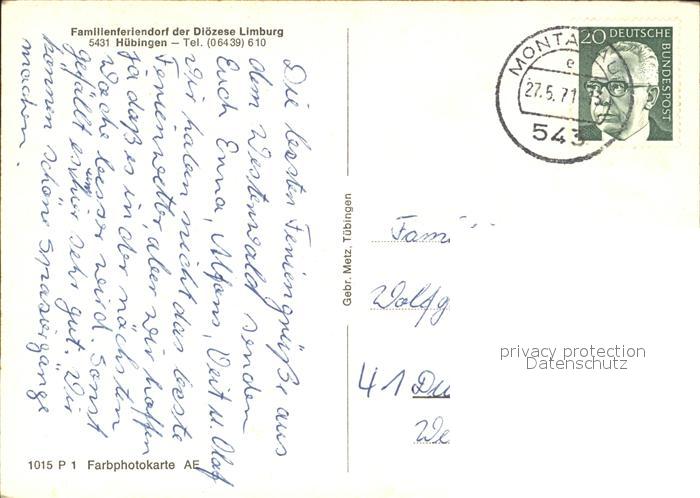 Familienferiendorf der Diözese Limburg
5431 Hübingen — Tel. (06439) 610
Die besten Feriengrüße aus
dem Westerwald senden
Euch Enna, Alfons, Veit u. Olaf
Wir haben nicht das beste
Ferienwetter, aber wir hoffen
ja, daß es in der nächsten
Woche besser wird. Sonst
gefällt es uns hier sehr gut. Wir
können schöne Spaziergänge
machen.
1015 P 1 Farbphotokarte AE
Gebr. Metz, Tübingen
MONTA
e
27.5.71
543
20 DEUTSCHE
BUNDESPOST
Fami
Wolfg
41 Du
We
privacy protection
Datenschutz